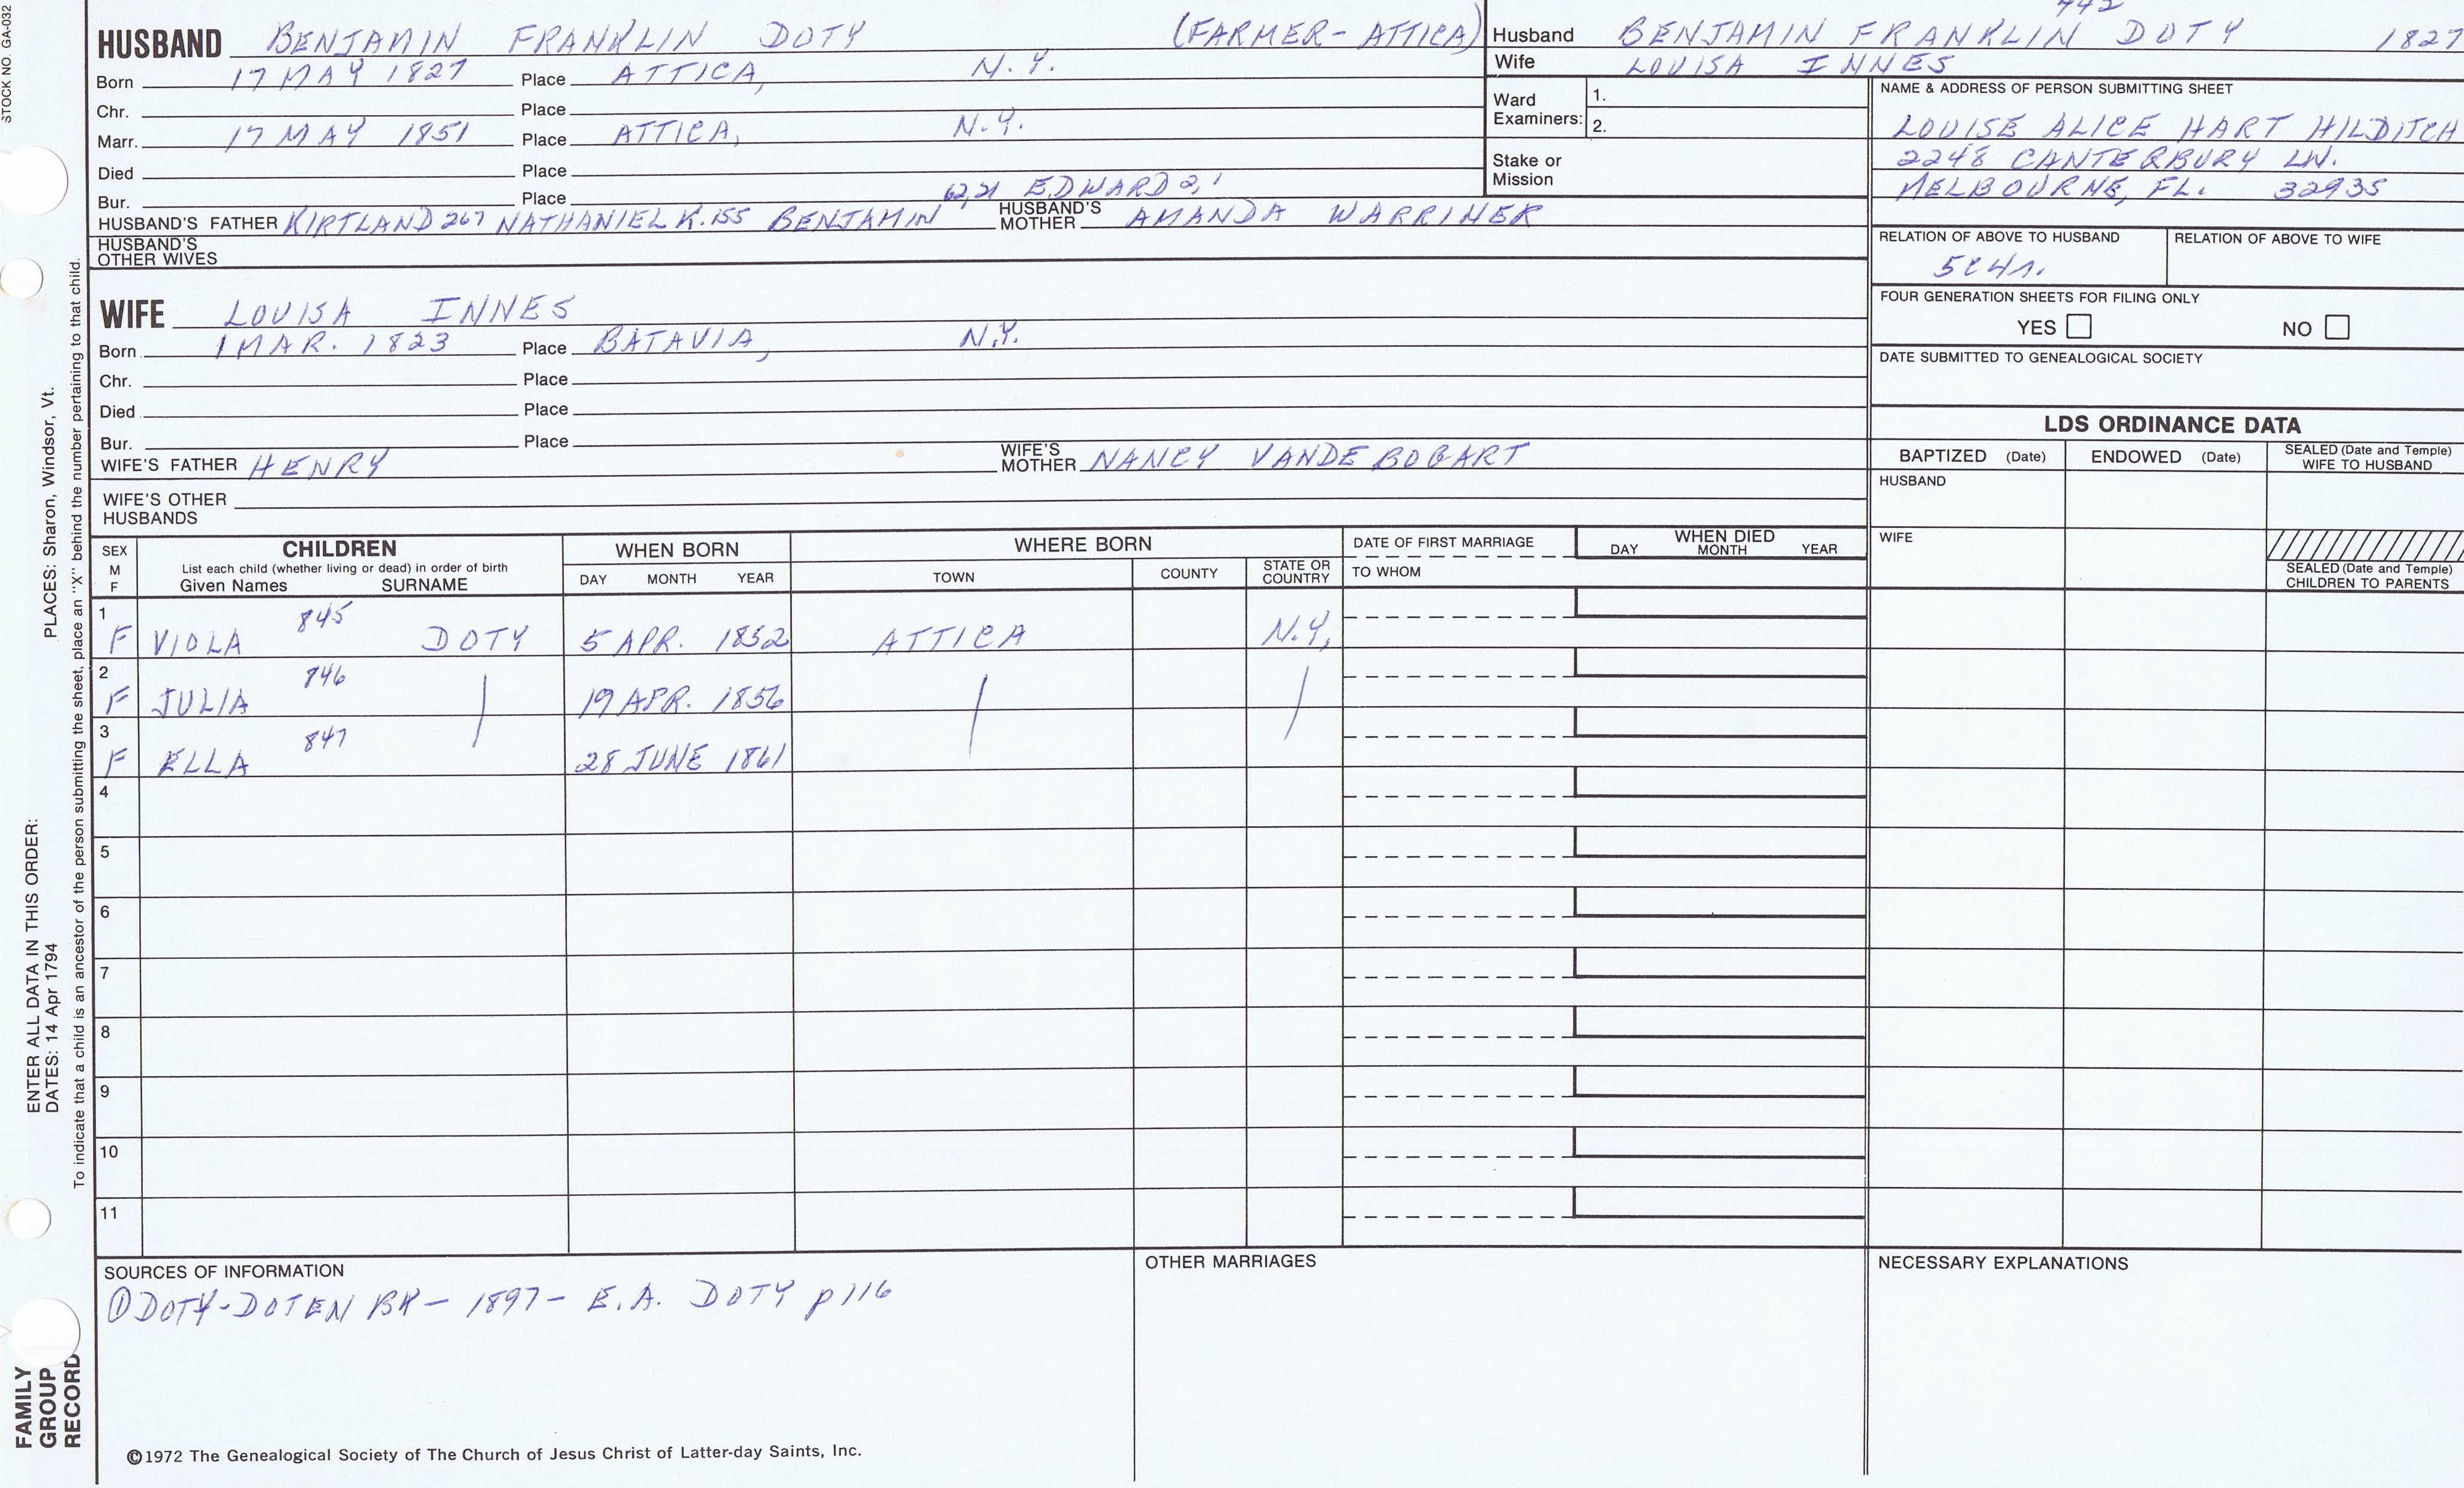 STOCK NO. GA-032
HUSBAND BENJAMIN FRANKLIN DOTY (FARMER - ATTICA)
Born 17 MAY 1827 Place ATTICA, N.Y.
Chr. Place
Marr. 17 MAY 1851 Place ATTICA, N.Y.
Died Place
Bur. Place
62,21 EDWARD 2,1
HUSBAND'S FATHER KIRTLAND 267 NATHANIEL K. 155 BENJAMIN HUSBAND'S MOTHER AMANDA WARRINER
HUSBAND'S OTHER WIVES
WIFE LOUISA INNES
Born 1 MAR. 1823 Place BATAVIA, N.Y.
Chr. Place
Died Place
Bur. Place
WIFE'S FATHER HENRY WIFE'S MOTHER NANCY VANDEBOGART
WIFE'S OTHER HUSBANDS
442
Husband BENJAMIN FRANKLIN DOTY 1827
Wife LOUISA INNES
Ward Examiners: 1.
2.
Stake or Mission
NAME & ADDRESS OF PERSON SUBMITTING SHEET
LOUISE ALICE HART HILDITCH
2248 CANTERBURY LN.
MELBOURNE, FL. 32935
RELATION OF ABOVE TO HUSBAND RELATION OF ABOVE TO WIFE
5C4R.
FOUR GENERATION SHEETS FOR FILING ONLY
YES NO
DATE SUBMITTED TO GENEALOGICAL SOCIETY
LDS ORDINANCE DATA
BAPTIZED (Date) ENDOWED (Date) SEALED (Date and Temple) WIFE TO HUSBAND
HUSBAND
WIFE
SEALED (Date and Temple) CHILDREN TO PARENTS
SEX M F
CHILDREN
List each child (whether living or dead) in order of birth
Given Names SURNAME
WHEN BORN
DAY MONTH YEAR
WHERE BORN
TOWN COUNTY STATE OR COUNTRY
DATE OF FIRST MARRIAGE
TO WHOM
WHEN DIED
DAY MONTH YEAR
1 F VIOLA 845 DOTY 5 APR. 1852 ATTICA N.Y.
2 F JULIA 846 19 APR. 1856
3 F ELLA 847 28 JUNE 1861
4
5
6
7
8
9
10
11
SOURCES OF INFORMATION
① DOTY-DOTEN BK - 1897 - E.A. DOTY p116
OTHER MARRIAGES
NECESSARY EXPLANATIONS
©1972 The Genealogical Society of The Church of Jesus Christ of Latter-day Saints, Inc.
FAMILY
GROUP
RECORD
ENTER ALL DATA IN THIS ORDER:
DATES: 14 Apr 1794 PLACES: Sharon, Windsor, Vt.
To indicate that a child is an ancestor of the person submitting the sheet, place an "X" behind the number pertaining to that child.